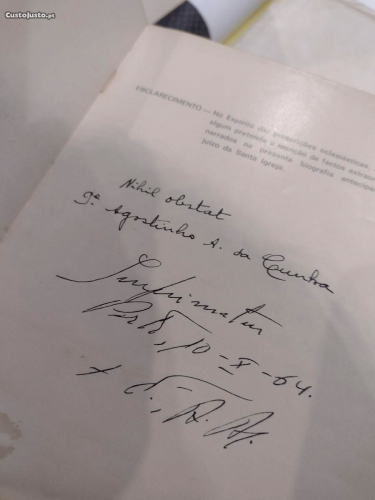 CustoJusto.pt
ESCLARECIMENTO — No Espírito das prescrições eclesiásticas,
algum pretende a menção de factos extraor
narrados na presente biografia antecipa
juízo da Santa Igreja.
Nihil obstat
P.e Agostinho A. da Cunha
Imprimatur
Porto, 10-X-64.
+